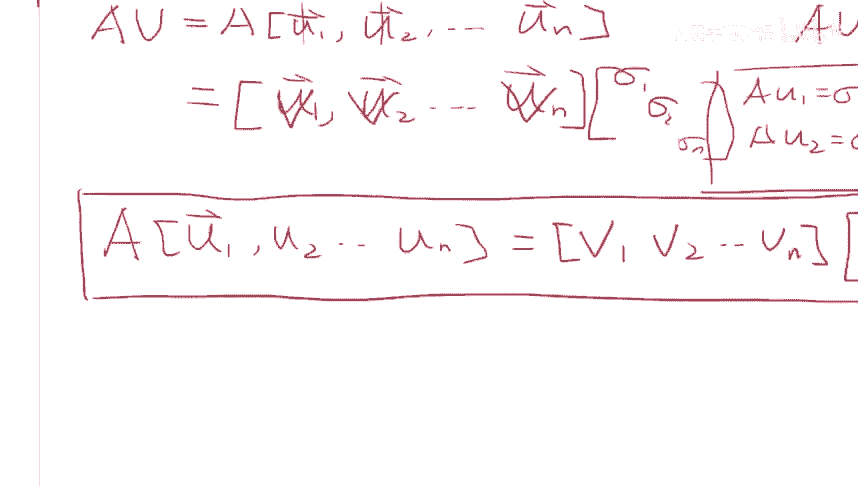 AU = A[u⃗₁, u⃗₂, ... u⃗ₙ] AU
= [v⃗₁, v⃗₂ ... v⃗ₙ] [σ₁ σ₂ σₙ Au₁ = σ
Au₂ = σ
A[u⃗₁, u₂ ... uₙ] = [v₁ v₂ ... vₙ] [